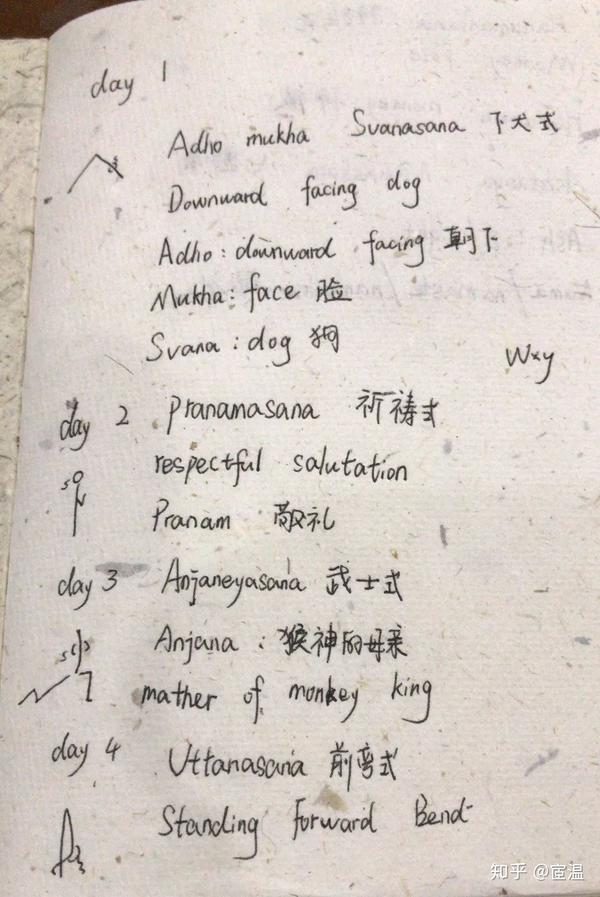 day 1
Adho mukha Svanasana 下犬式
Downward facing dog
Adho: downward facing 朝下
Mukha: face 脸
Svana: dog 狗
Wxy
day 2 pranamasana 祈祷式
respectful salutation
Pranam 敬礼
day 3 Anjaneyasana 武士式
Anjana: 猴神的母亲
mather of monkey king
day 4 Uttanasana 前弯式
Standing Forward Bend
知乎 @宦温